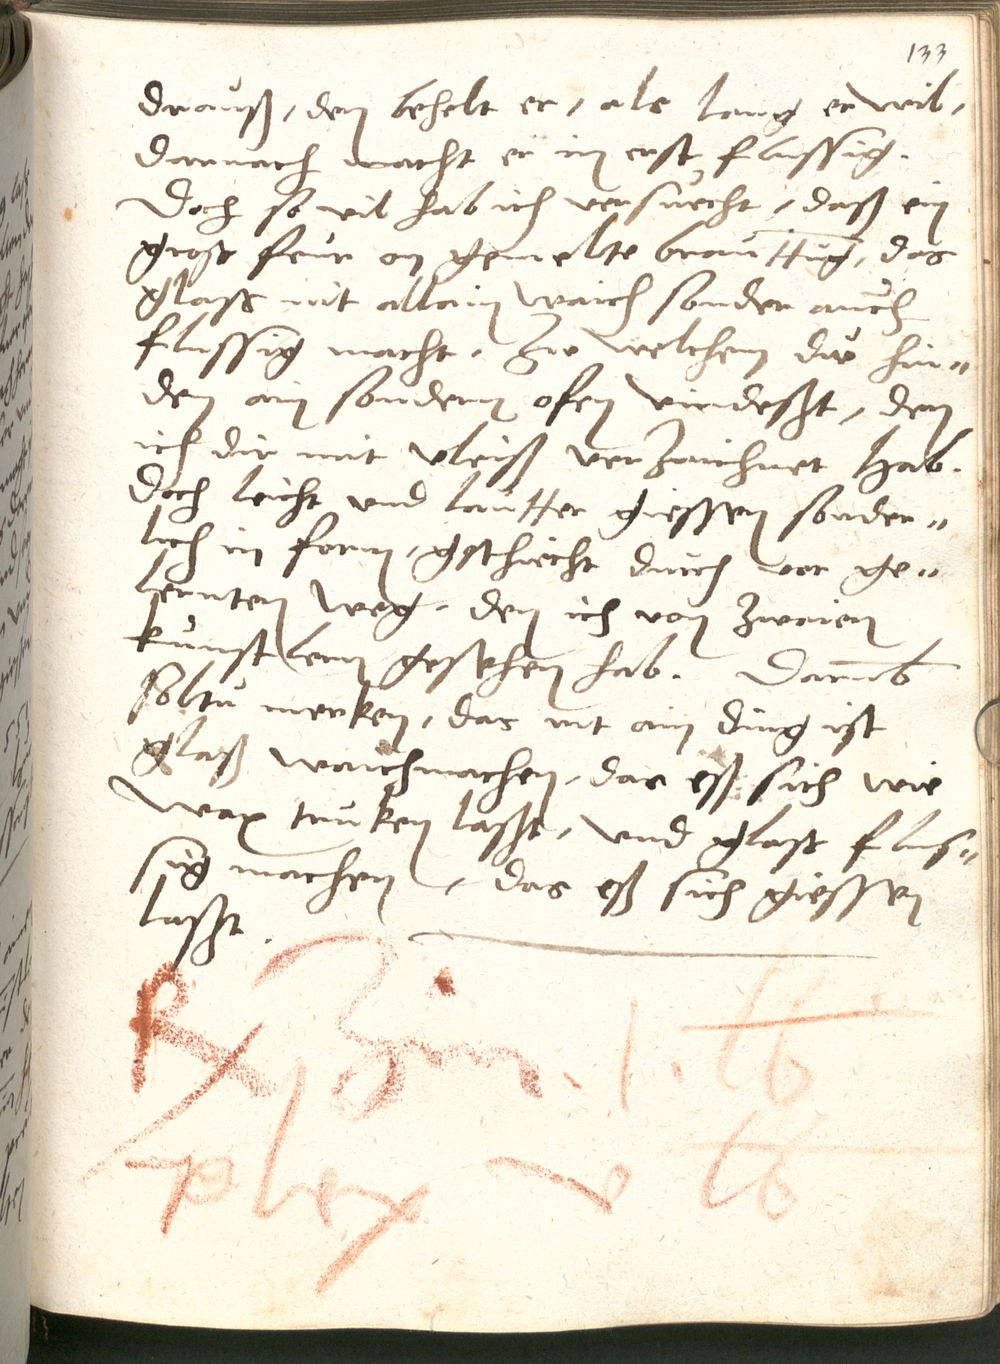 133
drauß, den behelt er, als lang er wil,
darnach macht er in erst flussig.
Doch so vil hab ich versuecht, daß ein
groß feur on gemelte brauttug, das
glass nit allain waich sonder auch
flussig macht. Zu welchem du hin„
den ain sondern ofen vindesßt, den
ich dir mit vleiß verzaichnet hab.
Doch leicht und lautter giessen sonder„
lich in form, gschiecht durch vor ge„
lernten weg. den ich von zwaien
kunstlern gesehen hab. Darub
soltu merken, das nit ain ding ist
glaß waichmachen, das eß sich wie
wax truken lasst, und glass flus„
sig machen, das eß sich giessen
lasßt.
℞ Zin. 1. lb
plex lb